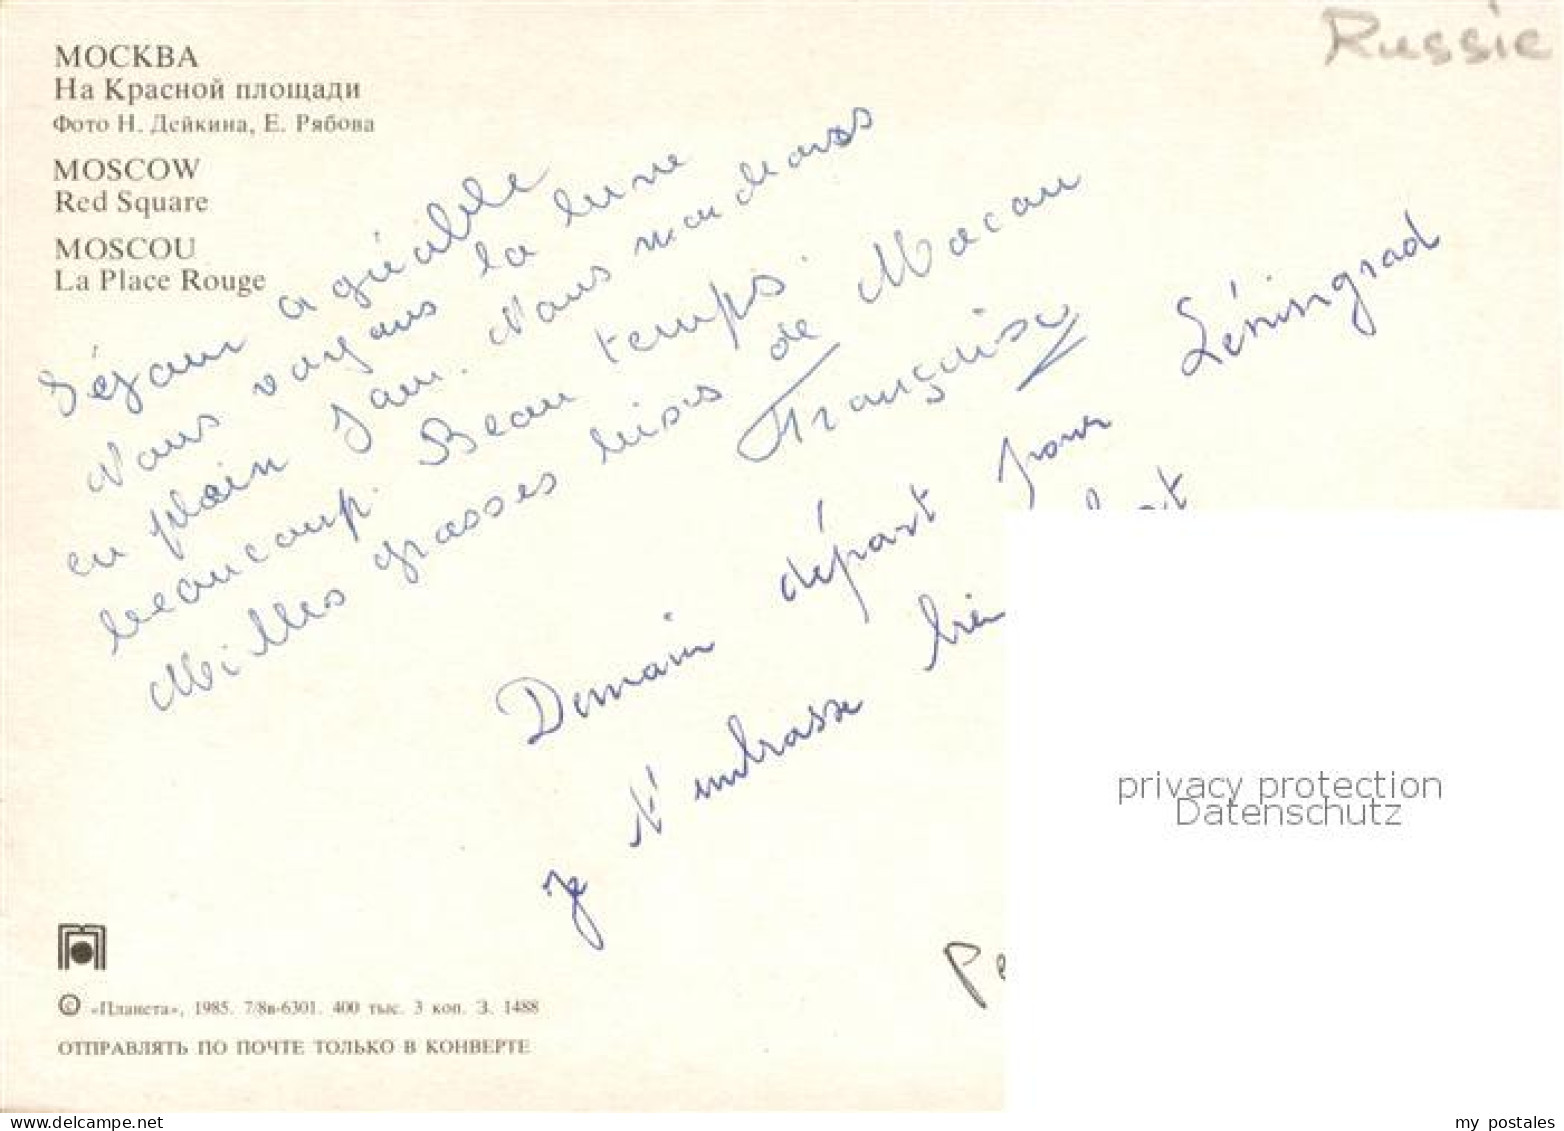 Russie
МОСКВА
На Красной площади
Фото Н. Дейкина, Е. Рябова
MOSCOW
Red Square
MOSCOU
La Place Rouge
Séjour agréable
Nous voyons la lune
en plein jour. Nous marchons
beaucoup. Beau temps.
Milles grosses bises de Macau
Françoise
Demain départ pour Léningrad
je t'embrasse bien
Pe
privacy protection
Datenschutz
© «Планета», 1985. 7/8в-6301. 400 тыс. 3 коп. З. 1488
ОТПРАВЛЯТЬ ПО ПОЧТЕ ТОЛЬКО В КОНВЕРТЕ
www.delcampe.net
my_postales